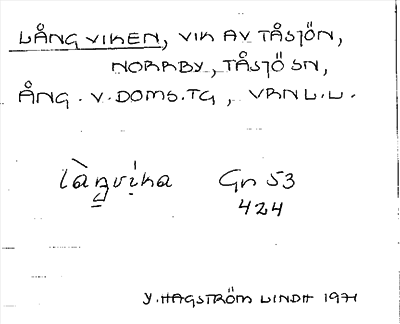 LÅNGVIKEN, VIK AV TÅSJÖN,
NORRBY, TÅSJÖ SN,
ÅNG. V. DOMS. TG, VRNL.L.
làŋvi̩ka Gn 53
424
Y. HAGSTRÖM LINDH 1971